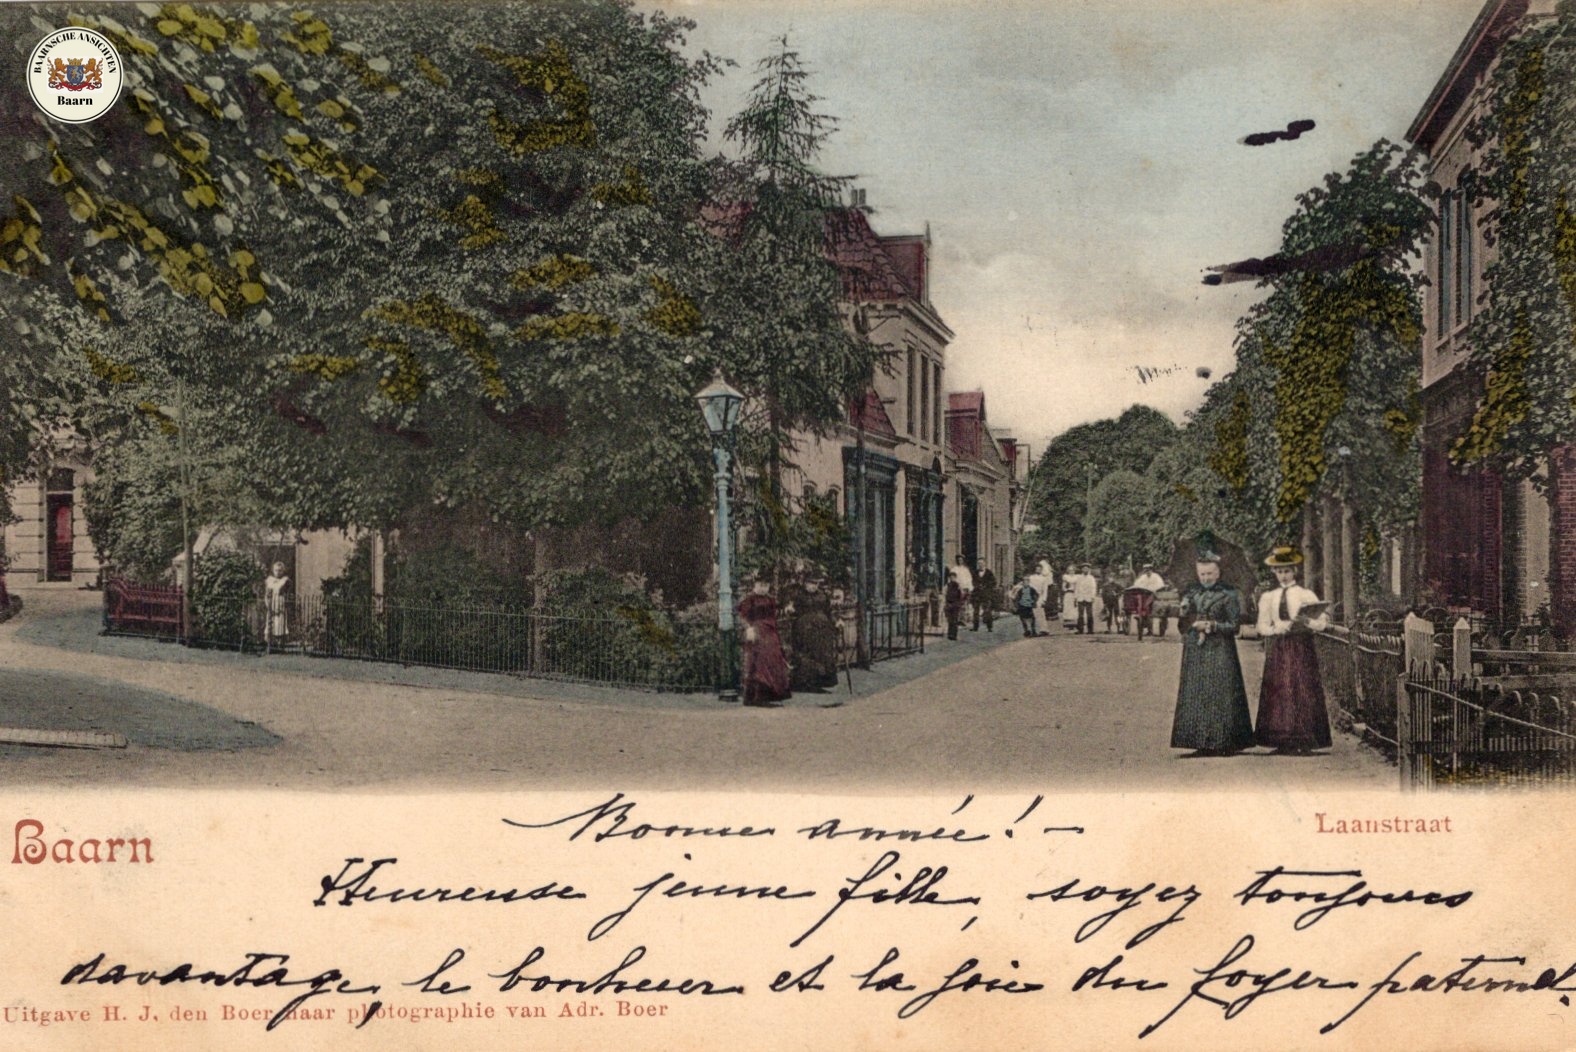 BAARNSCHE ANSICHTEN
Baarn
Baarn
Laanstraat
Bonne année! –
Heureuse jeune fille, soyez toujours
davantage, le bonheur et la joie du foyer paternel.
Uitgave H. J. den Boer naar photographie van Adr. Boer